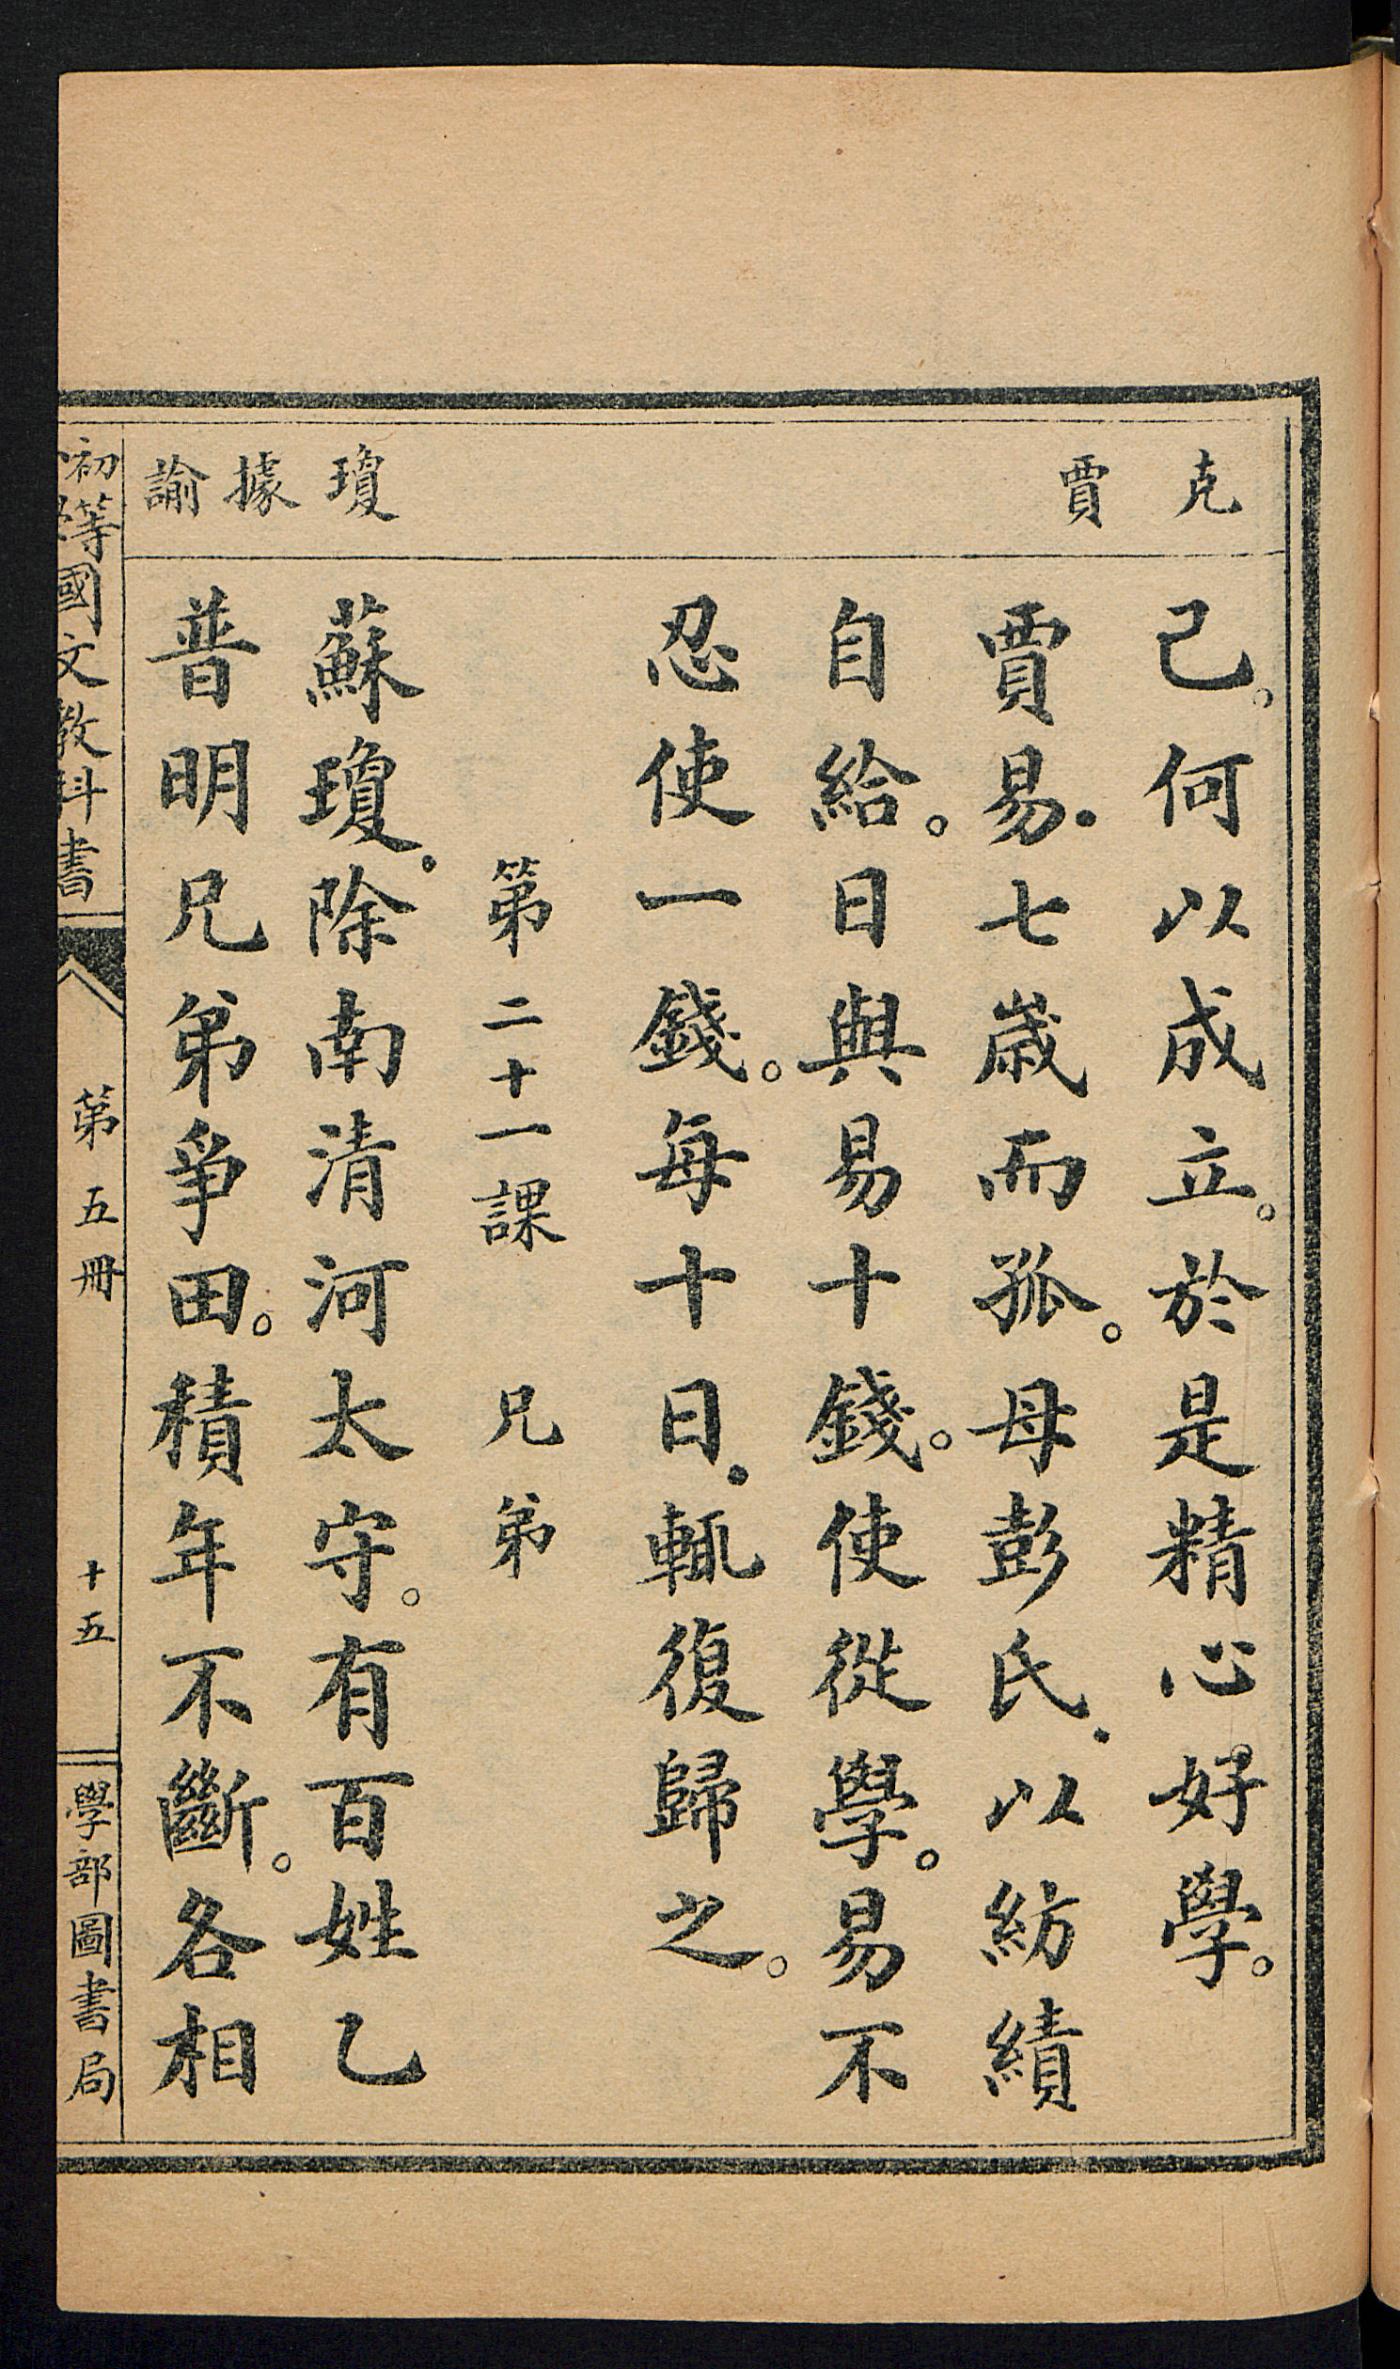 克
賈
瓊
據
諭
己。何以成立。於是精心好學。
賈易.七歲而孤。母彭氏.以紡績
自給。日與易十錢。使從學。易不
忍使一錢。每十日.輒復歸之。
第二十一課 兄弟
蘇瓊.除南清河太守。有百姓乙
普明兄弟爭田。積年不斷。各相
初等國文教科書
第五冊
十五
學部圖書局